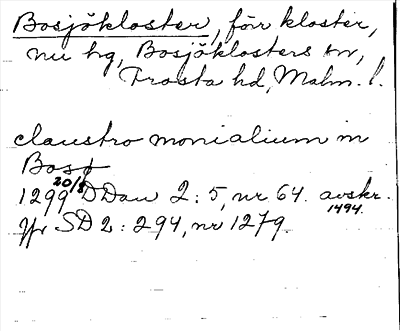 Bosjökloster, förr kloster,
nu hg, Bosjöklosters sn,
Frosta hd, Malm. l.
claustro monialium in
Bosø
1299 20/8 DDan 2:5, nr 64. avskr. 1494.
Jfr SD 2:294, nr 1279.